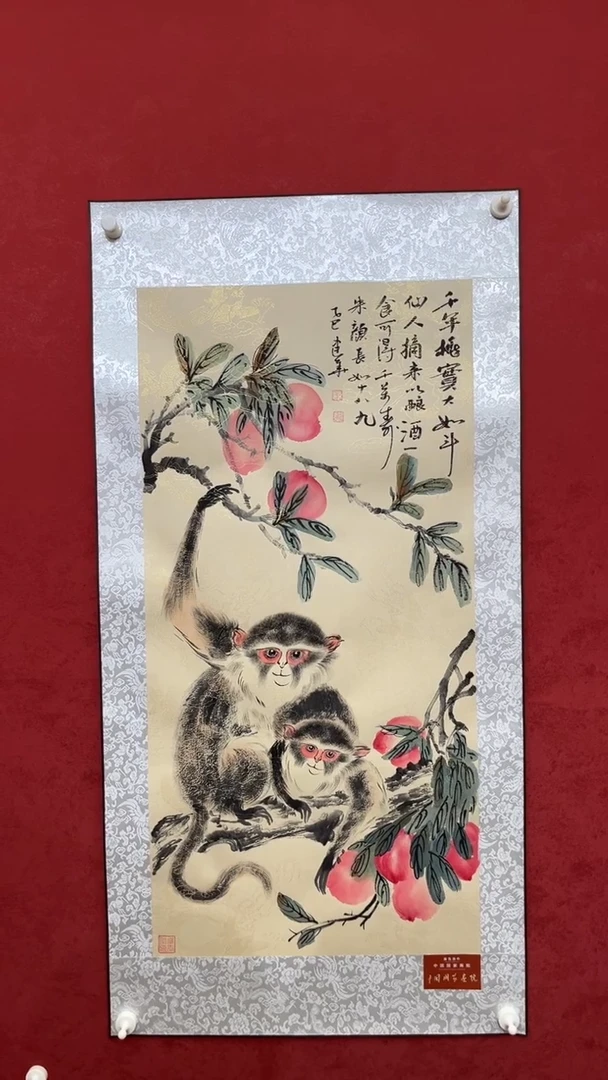 千年桃實大如斗
仙人摘来以釀酒一
食可得千萬壽
朱顔長如十八九
乙巳 建華
中国国家画院